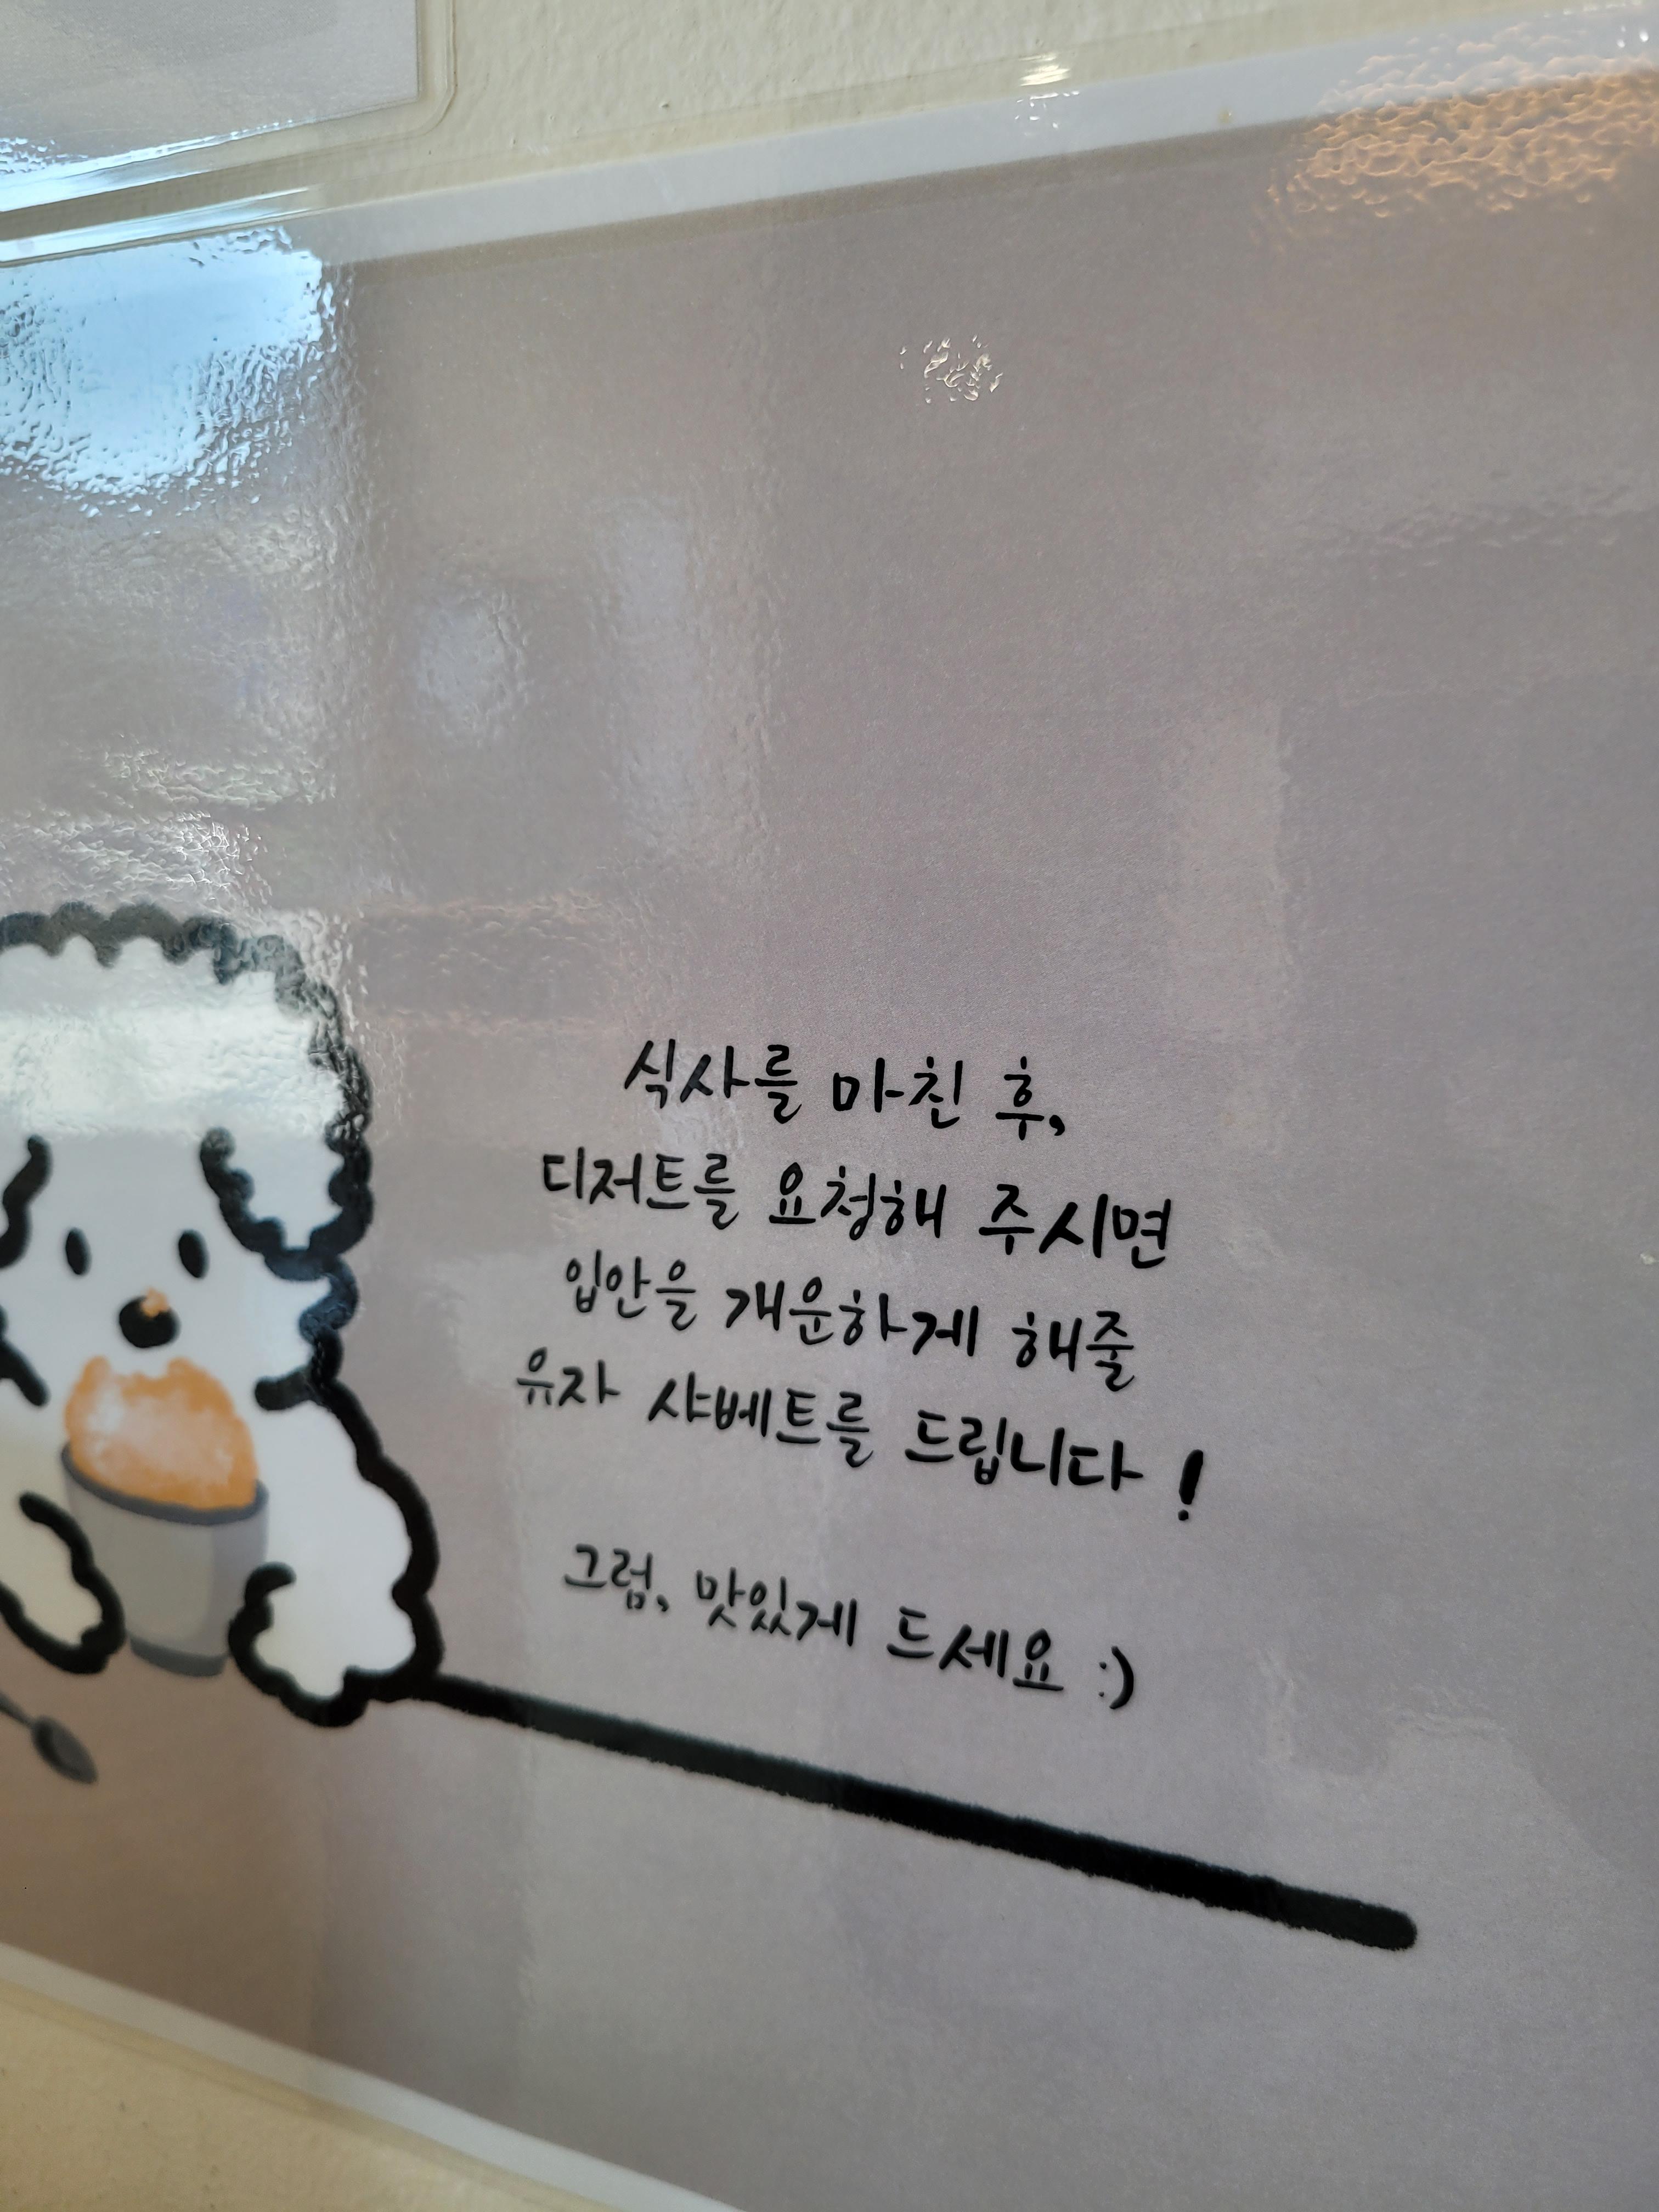 식사를 마친 후,
디저트를 요청해 주시면
입안을 개운하게 해줄
유자 샤베트를 드립니다!
그럼, 맛있게 드세요 :)